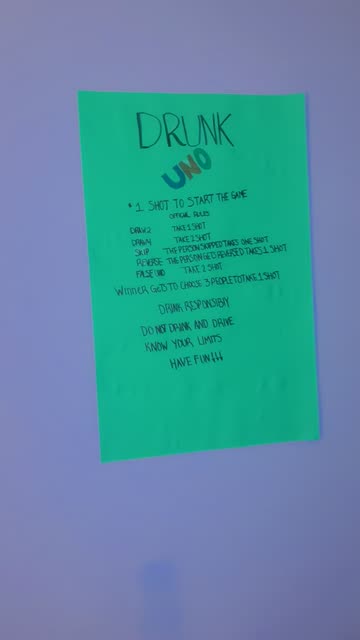 DRUNK
UNO
* 1 SHOT TO START THE GAME
OFFICIAL RULES
DRAW 2 TAKE 1 SHOT
DRAW 4 TAKE 2 SHOT
SKIP THE PERSON SKIPPED TAKES ONE SHOT
REVERSE THE PERSON GETS REVERSED TAKES 1 SHOT
FALSE UNO TAKE 2 SHOT
WINNER GETS TO CHOOSE 3 PEOPLE TO TAKE 1 SHOT
DRINK RESPONSIBLY
DO NOT DRINK AND DRIVE
KNOW YOUR LIMITS
HAVE FUN!!!